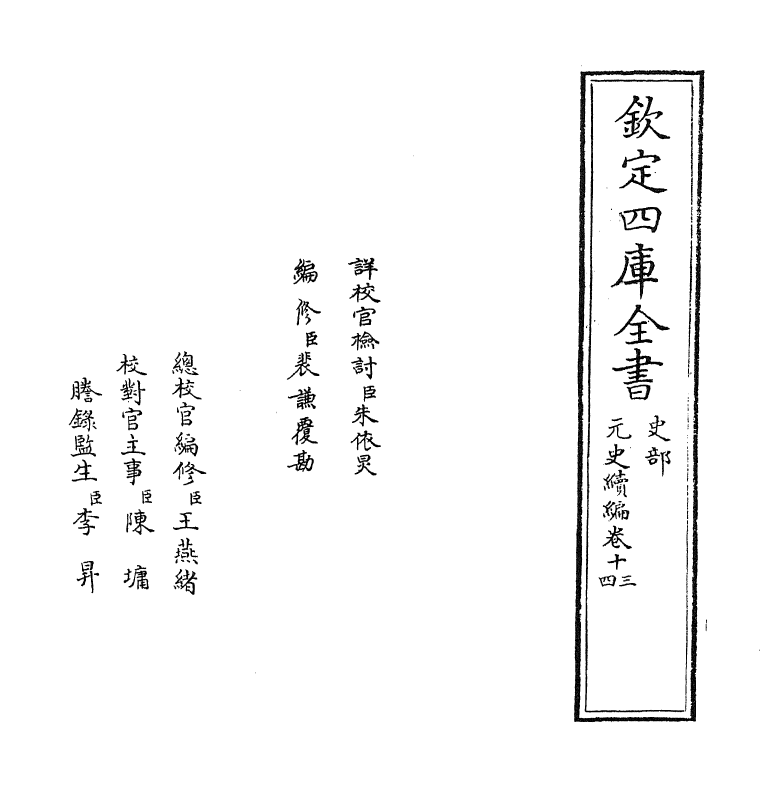 欽定四庫全書
史部
元史續編卷十三四
詳校官檢討臣朱依炅
編修臣裴謙覆勘
總校官編修臣王燕緒
校對官主事臣陳墉
謄錄監生臣李昇